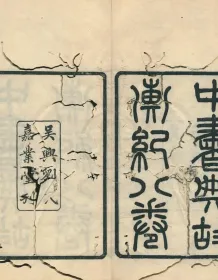 中書典故
彙紀八卷
吳興劉氏
嘉業堂刊